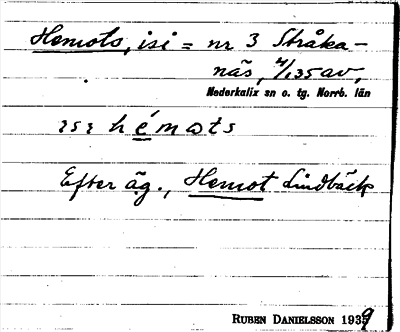 Hemots, isi = nr 3 Stråka-
näs, 4/135 av,
Nederkalix sn o. tg. Norrb. län
hémɷts
Efter äg., Hemot Lindbäck
RUBEN DANIELSSON 1939